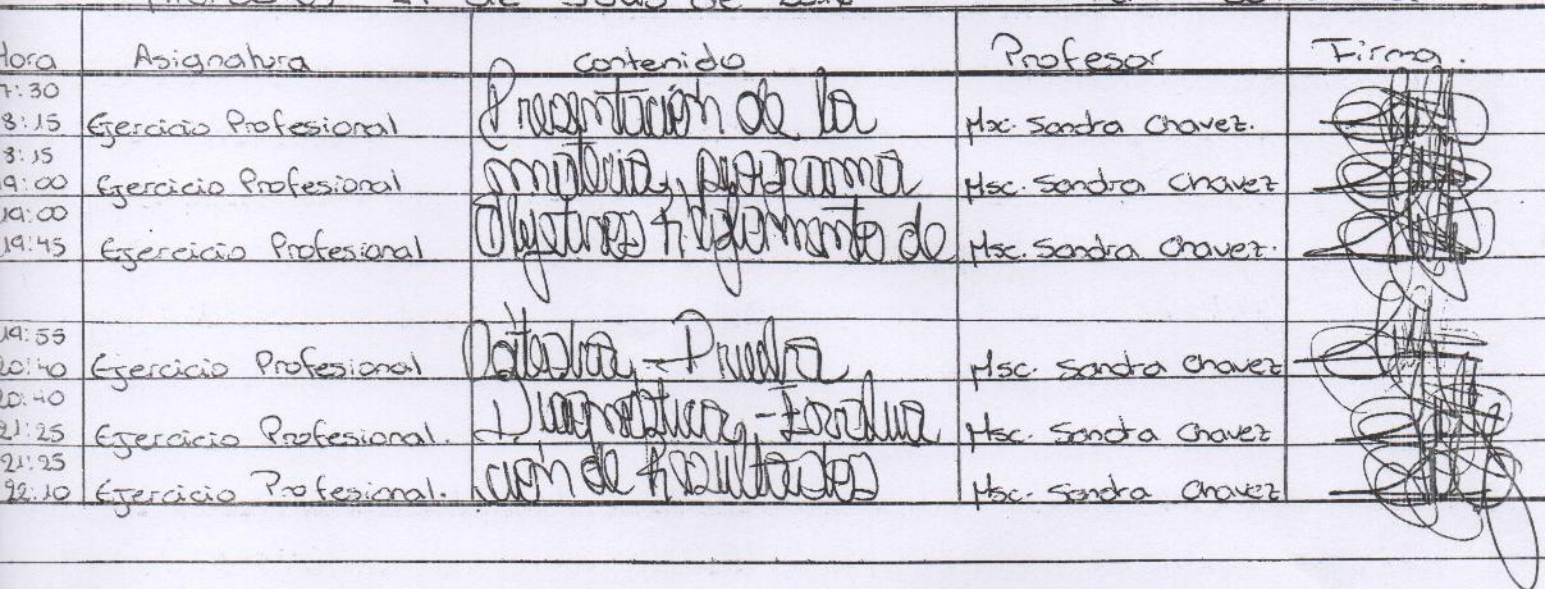 Hora Asignatura contenido Profesor Firma.
7:30
8:15 Ejercicio Profesional Presentación de la Msc. Sandra Chavez.
8:15
19:00 Ejercicio Profesional materia, programa Msc. Sandra Chavez
19:00
19:45 Ejercicio Profesional Objetivos y Reglamento de Msc. Sandra Chavez.
19:55
20:40 Ejercicio Profesional Cátedra, - Prueba Msc. Sandra Chavez
20:40
21:25 Ejercicio Profesional. Diagnóstica, - Evalua Msc. Sandra Chavez
21:25
22:10 Ejercicio Profesional. ción de Resultados Msc. Sandra Chavez